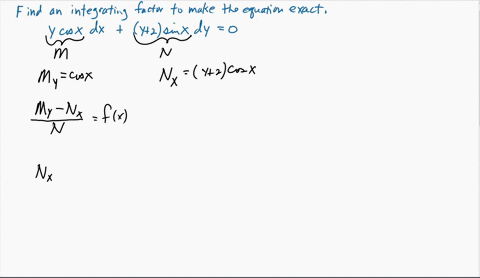 Find an integrating factor to make the equation exact.
y cosx dx + (y+2) sinx dy = 0
M N
My = cosx Nx = (y+2) cosx
My - Nx / N = f(x)
Nx